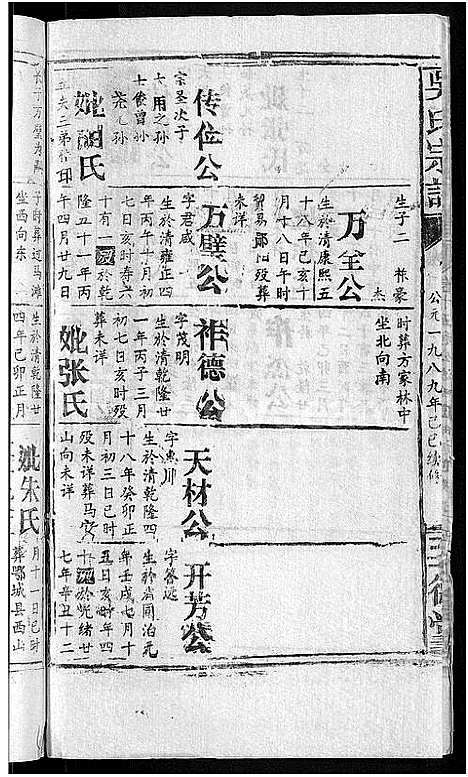 吴氏宗谱
公元一九八九年己巳续修
生子二 祚豪
杰
时葬方家林中
坐北向南
万全公
生於清康熙五
十八年己亥十
月十八日午时
贸易郧阳殁葬
未详
传位公
宗圣次子
士俊曾孙
妣胡氏
万璧公
字君咸
生於清雍正四
年丙午十月初
七日亥时寿六
十有
殁於乾
隆五十一年丙
午四月廿九日
子时葬过马滩
坐西向东
祚德公
字茂明
生於清乾隆廿
一年丙子三月
初七日亥时殁
葬未详
妣张氏
生於清乾隆廿
四年己卯正月
天材公
字惠川
生於清乾隆四
十八年癸卯正
月初三日巳时
殁未详葬马安
山向未详
妣朱氏
开芳公
字答远
生於清同治元
年壬戌七月十
五亥时年四
十殁於光绪廿
七年辛丑十二
月十一日巳时
葬鄂城县西山